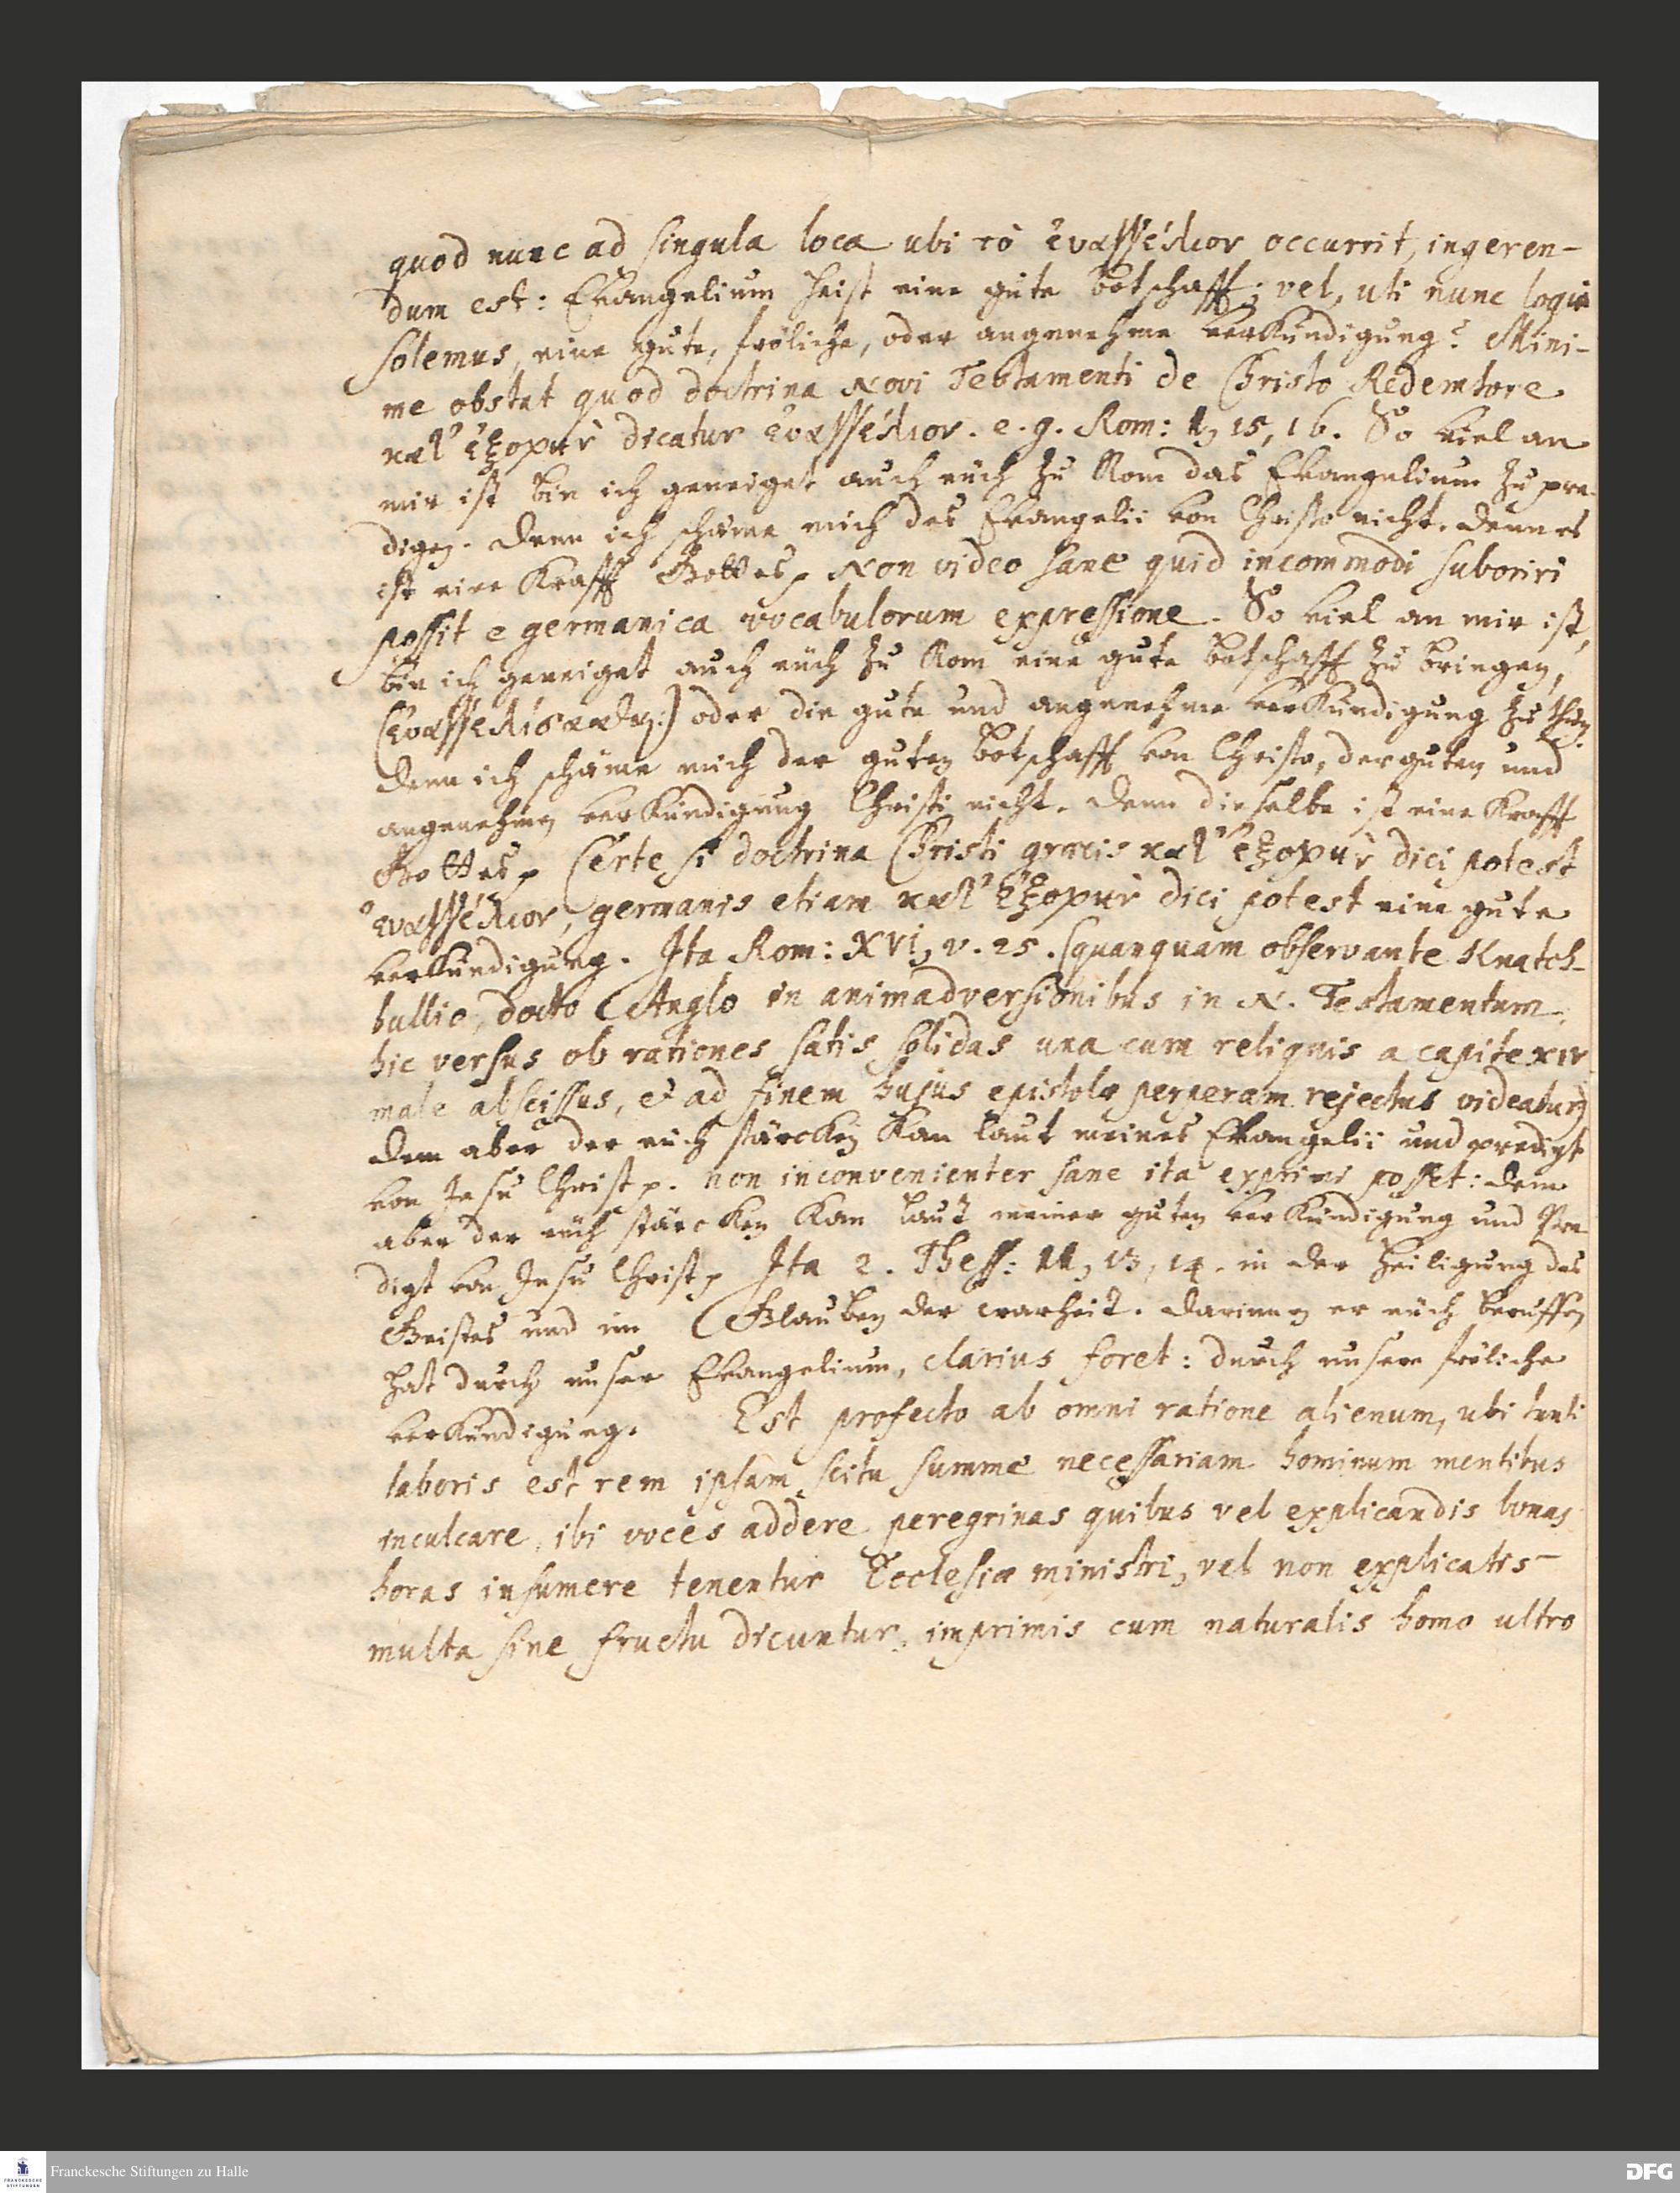 quod nunc ad singula loca ubi τὸ ἐυαγγέλιον occurrit, ingeren-
dum est: Evangelium heist eine gute botschafft; vel, uti nunc loqui
solemus, eine gute, fröliche, oder angenehme verkündigung? Mini-
me obstat quod doctrina Novi Testamenti de Christo Redemtore
κατ' ἐξοχὴν dicatur ἐυαγγέλιον. e. g. Rom: 1, 15, 16. So viel an
mir ist bin ich geneiget auch euch zu Rom das Evangelium zu pre-
digen. Denn ich schäme mich des Evangelii von Christo nicht. denn es
ist eine Krafft Gottes p Non video sane quid incommodi suboriri
possit e germanica vocabulorum expressione. So viel an mir ist,
bin ich geneiget auch euch zu Rom eine gute botschafft zu bringen,
(ἐυαγγελίσασθαι:) oder die gute und angenehme verkündigung zu thun.
Denn ich schäme mich der guten botschafft von Christo, der guten und
angenehmen verkündigung Christi nicht. Denn dieselbe ist eine Krafft
Gottes p Certe si doctrina Christi græcis κατ' ἐξοχὴν dici potest
ἐυαγγέλιον, germanis etiam κατ' ἐξοχὴν dici potest eine gute
verkündigung. Ita Rom: XVI, v. 25. (quanquam observante Knatch-
bullio, docto Anglo in animadversionibus in N. Testamentum,
hic versus ob rationes satis solidas una cum reliquis a capite XIV
male abscissus, et ad finem hujus epistolæ perperam rejectus videatur)
Dem aber der euch stärcken kan laut meines Evangelii und predigt
von Jesu Christ p. non inconvenienter sane ita exprimi posset: dem
aber der euch stärcken kan laut meiner guten verkündigung und Pre-
digt von Jesu Christ p Ita 2. Thess: 11, 13, 14. in der heiligung des
Geistes und im Glauben der warheit. darinnen er euch beruffen
hat durch unser Evangelium, clarius foret: durch unsere fröliche
verkündigung. Est profecto ab omni ratione alienum, ubi tanti
laboris est rem ipsam scitu summe necessariam hominum mentibus
inculcare, ibi voces addere peregrinas quibus vel explicandis bonas
horas insumere tenentur Ecclesiæ ministri, vel non explicatis
multa sine fructu dicuntur, imprimis cum naturalis homo ultro
Franckesche Stiftungen zu Halle
FRANCKESCHE
STIFTUNGEN
DFG